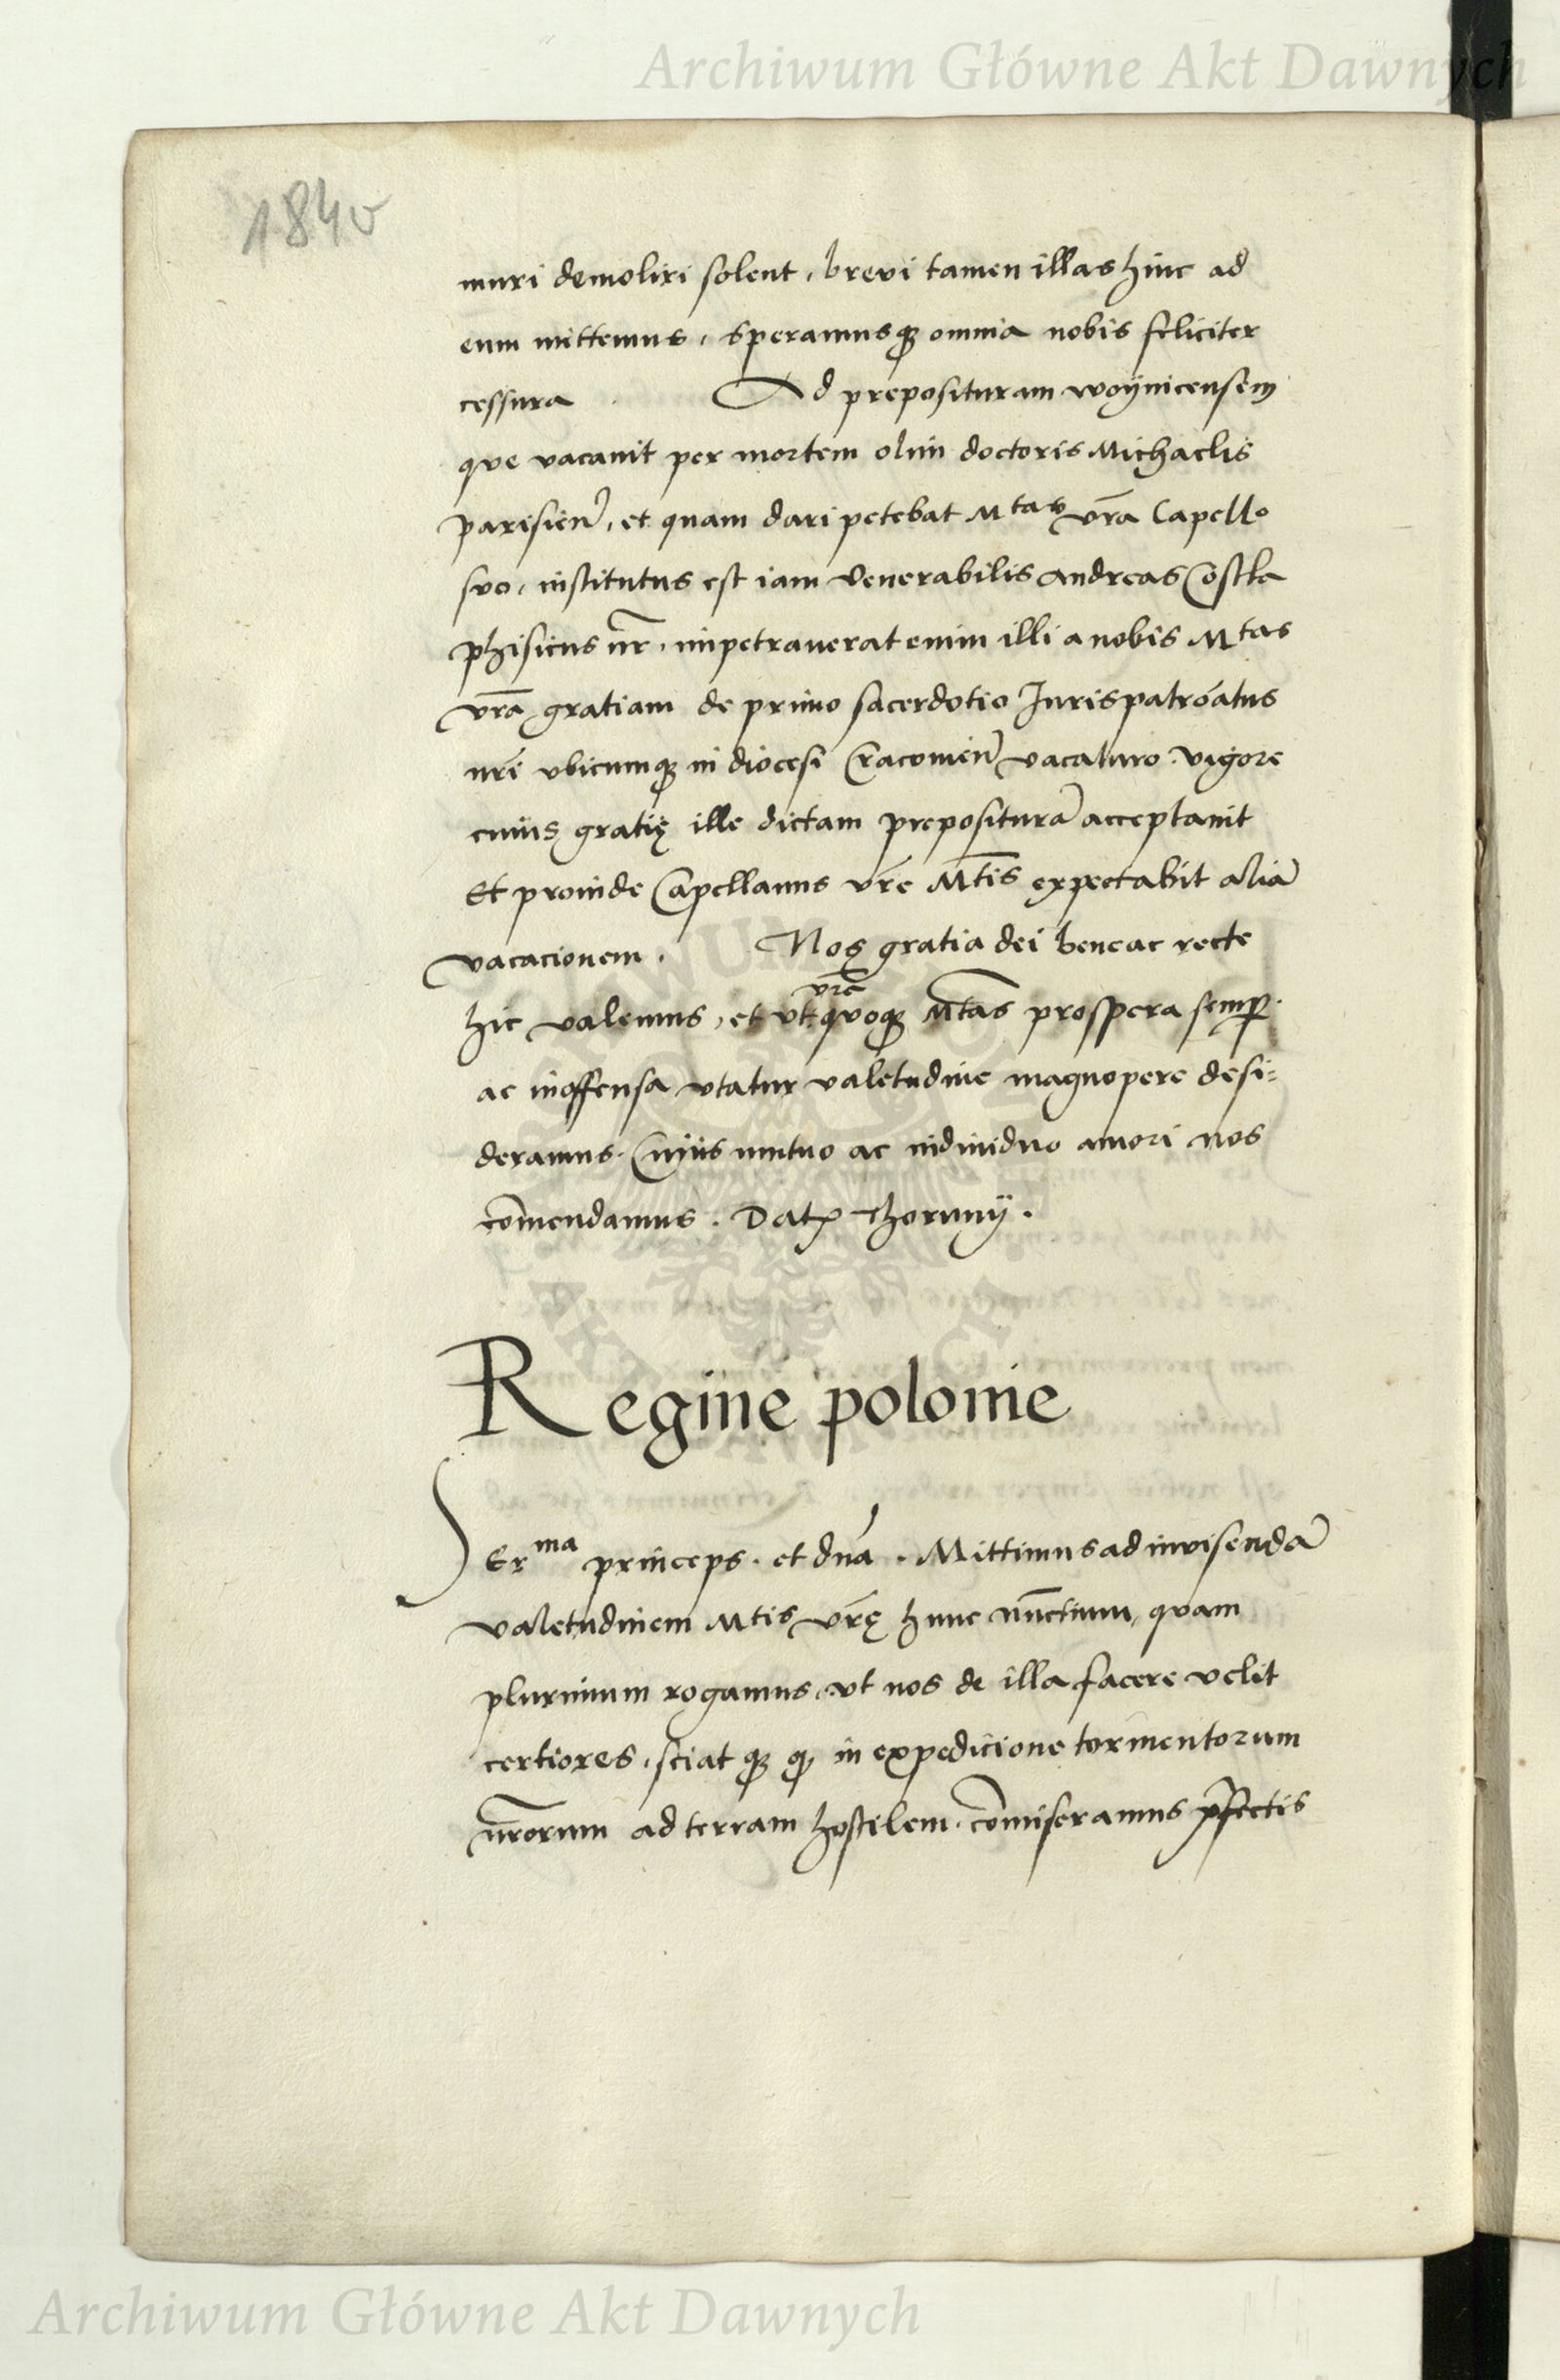 Archiwum Główne Akt Dawnych
184v
muri demoliri solent, brevi tamen illas hinc ad
eum mittemus, speramusq₃ omnia nobis feliciter
cessura Ad preposituram woÿnicensem
que vacauit per mortem olim doctoris Michaelis
parisien̄, et quam dari petebat Mtas vr̄a Capell⁰
suo, institutus est iam Venerabilis Andreas Costla
phisicus nr̄, impetrauerat enim illi a nobis Mtas
vr̄a gratiam de primo sacerdotio Jurispatrōatus
nrī vbicumq₃ in diocesi Cracouien̄ vacaturo. vigore
cuius gratię ille dictam prepositurā acceptauit
Et proinde Capellanus vr̄e Mtis expectabit aliā
vacacionem. Nos gratia dei bene ac recte
hic valemus, et vt quoq₃ vr̄e Mtas prospera semp̱
ac inoffensa vtatur valetudine magnopere desi=
deramus. Cuius mutuo ac indiuiduo amori nos
com̄endamus. Dat̄ thorunÿ.
Regine polonie
Serma princeps. et dn̄a. Mittimus ad inuisendā
valetudinem Mtis vr̄ę hunc nunctium, quam
plurimum rogamus, vt nos de illa facere velit
certiores, sciat q₃ q̄ in expedicione tormentorum
nr̄orum ad terram hostilem, com̄iseramus p̄fectis
Archiwum Główne Akt Dawnych